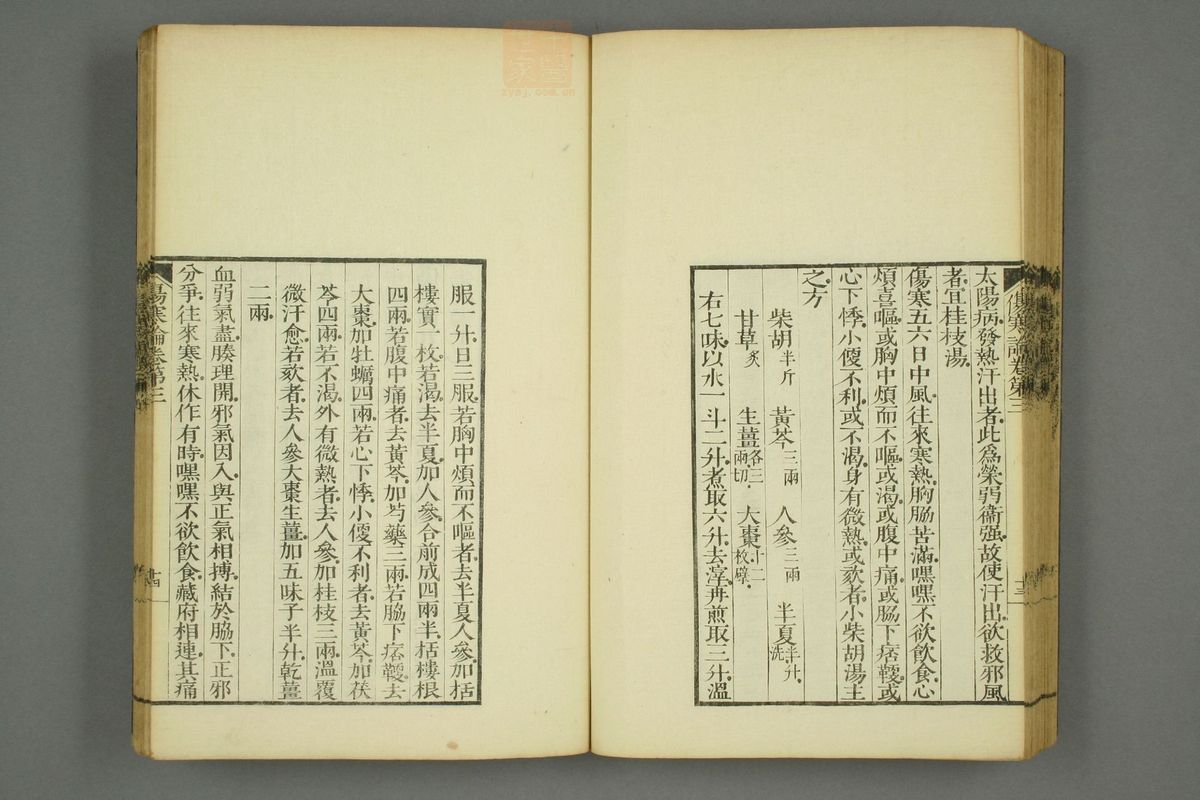 太陽病。發熱汗出者。此爲榮弱衞强。故使汗出。欲救邪風
者。宜桂枝湯。
傷寒五六日中風。往來寒熱。胸脇苦滿。嘿嘿不欲飲食。心
煩喜嘔。或胸中煩而不嘔。或渴。或腹中痛。或脇下痞鞕。或
心下悸。小便不利。或不渴。身有微熱。或欬者。小柴胡湯主
之。方
柴胡半斤 黃芩三兩 人參三兩 半夏半升。洗
甘草炙 生薑各三兩切。 大棗十二枚。擘。
右七味。以水一斗二升。煮取六升。去滓。再煎取三升。溫
傷寒論卷第三
十三
服一升。日三服。若胸中煩而不嘔者。去半夏人參。加栝
樓實一枚。若渴去半夏。加人參。合前成四兩半。栝樓根
四兩。若腹中痛者。去黃芩。加芍藥三兩。若脇下痞鞕。去
大棗。加牡蠣四兩。若心下悸。小便不利者。去黃芩。加茯
苓四兩。若不渴。外有微熱者。去人參。加桂枝三兩。溫覆
微汗愈。若欬者。去人參大棗生薑。加五味子半升。乾薑
二兩。
血弱氣盡。腠理開。邪氣因入。與正氣相搏。結於脇下。正邪
分爭。往來寒熱。休作有時。嘿嘿不欲飲食。藏府相連。其痛
傷寒論卷第三
十四
zysj.com.cn